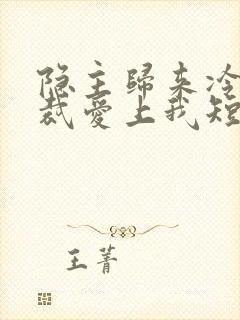 隐主歸来冷
裁愛上我短
王菁